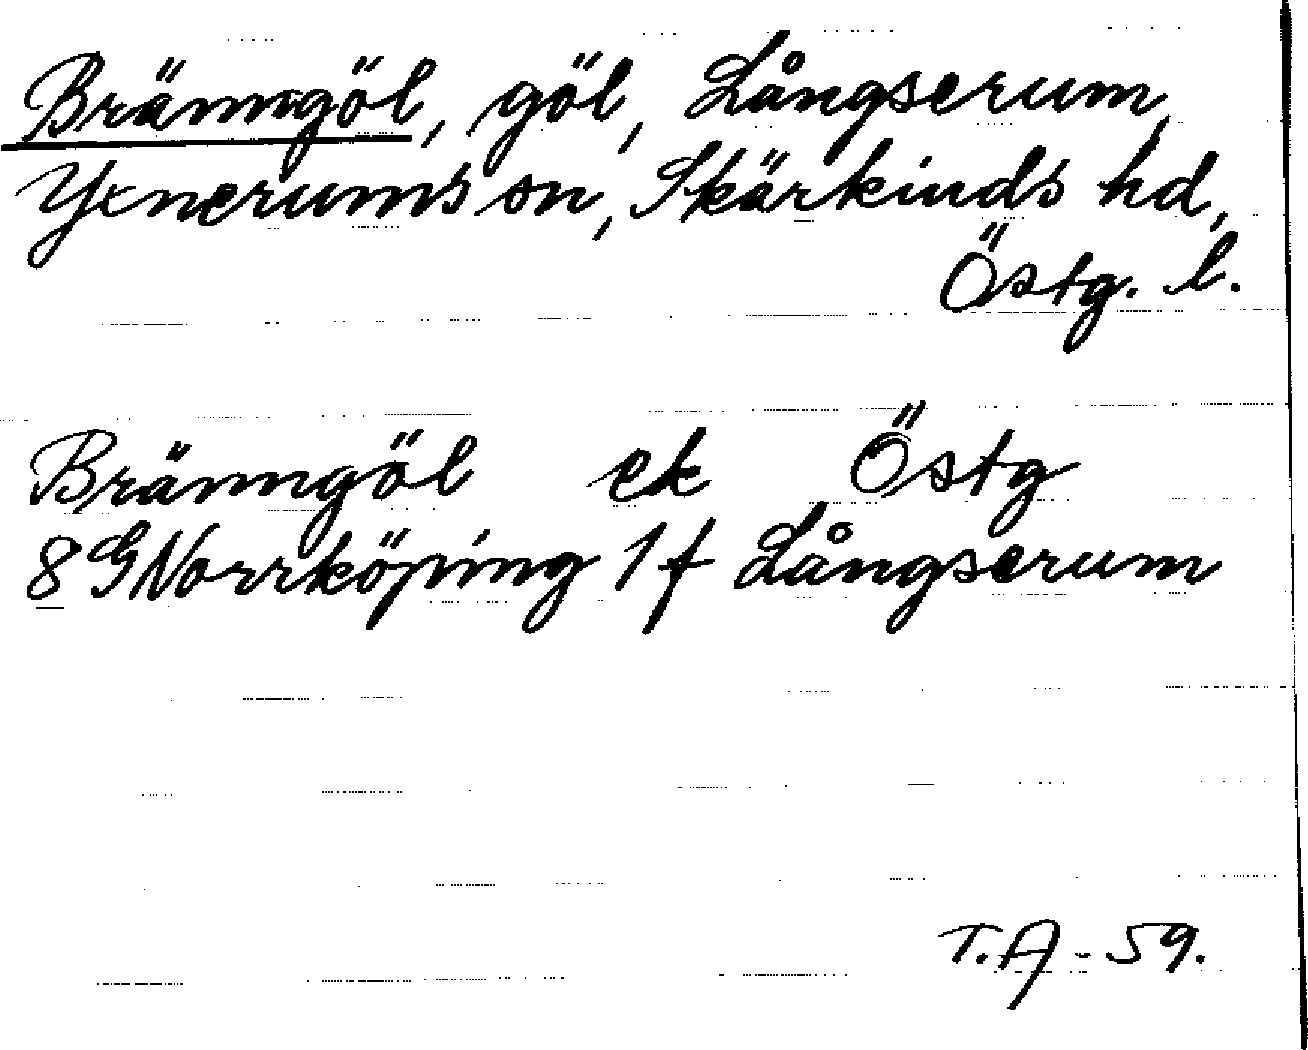 Bränngöl, göl, Långserum,
Yxnerums sn, Skärkinds hd,
Östg. l.
Bränngöl ek Östg
8 G Norrköping 1 f Långserum
T.A - 59.